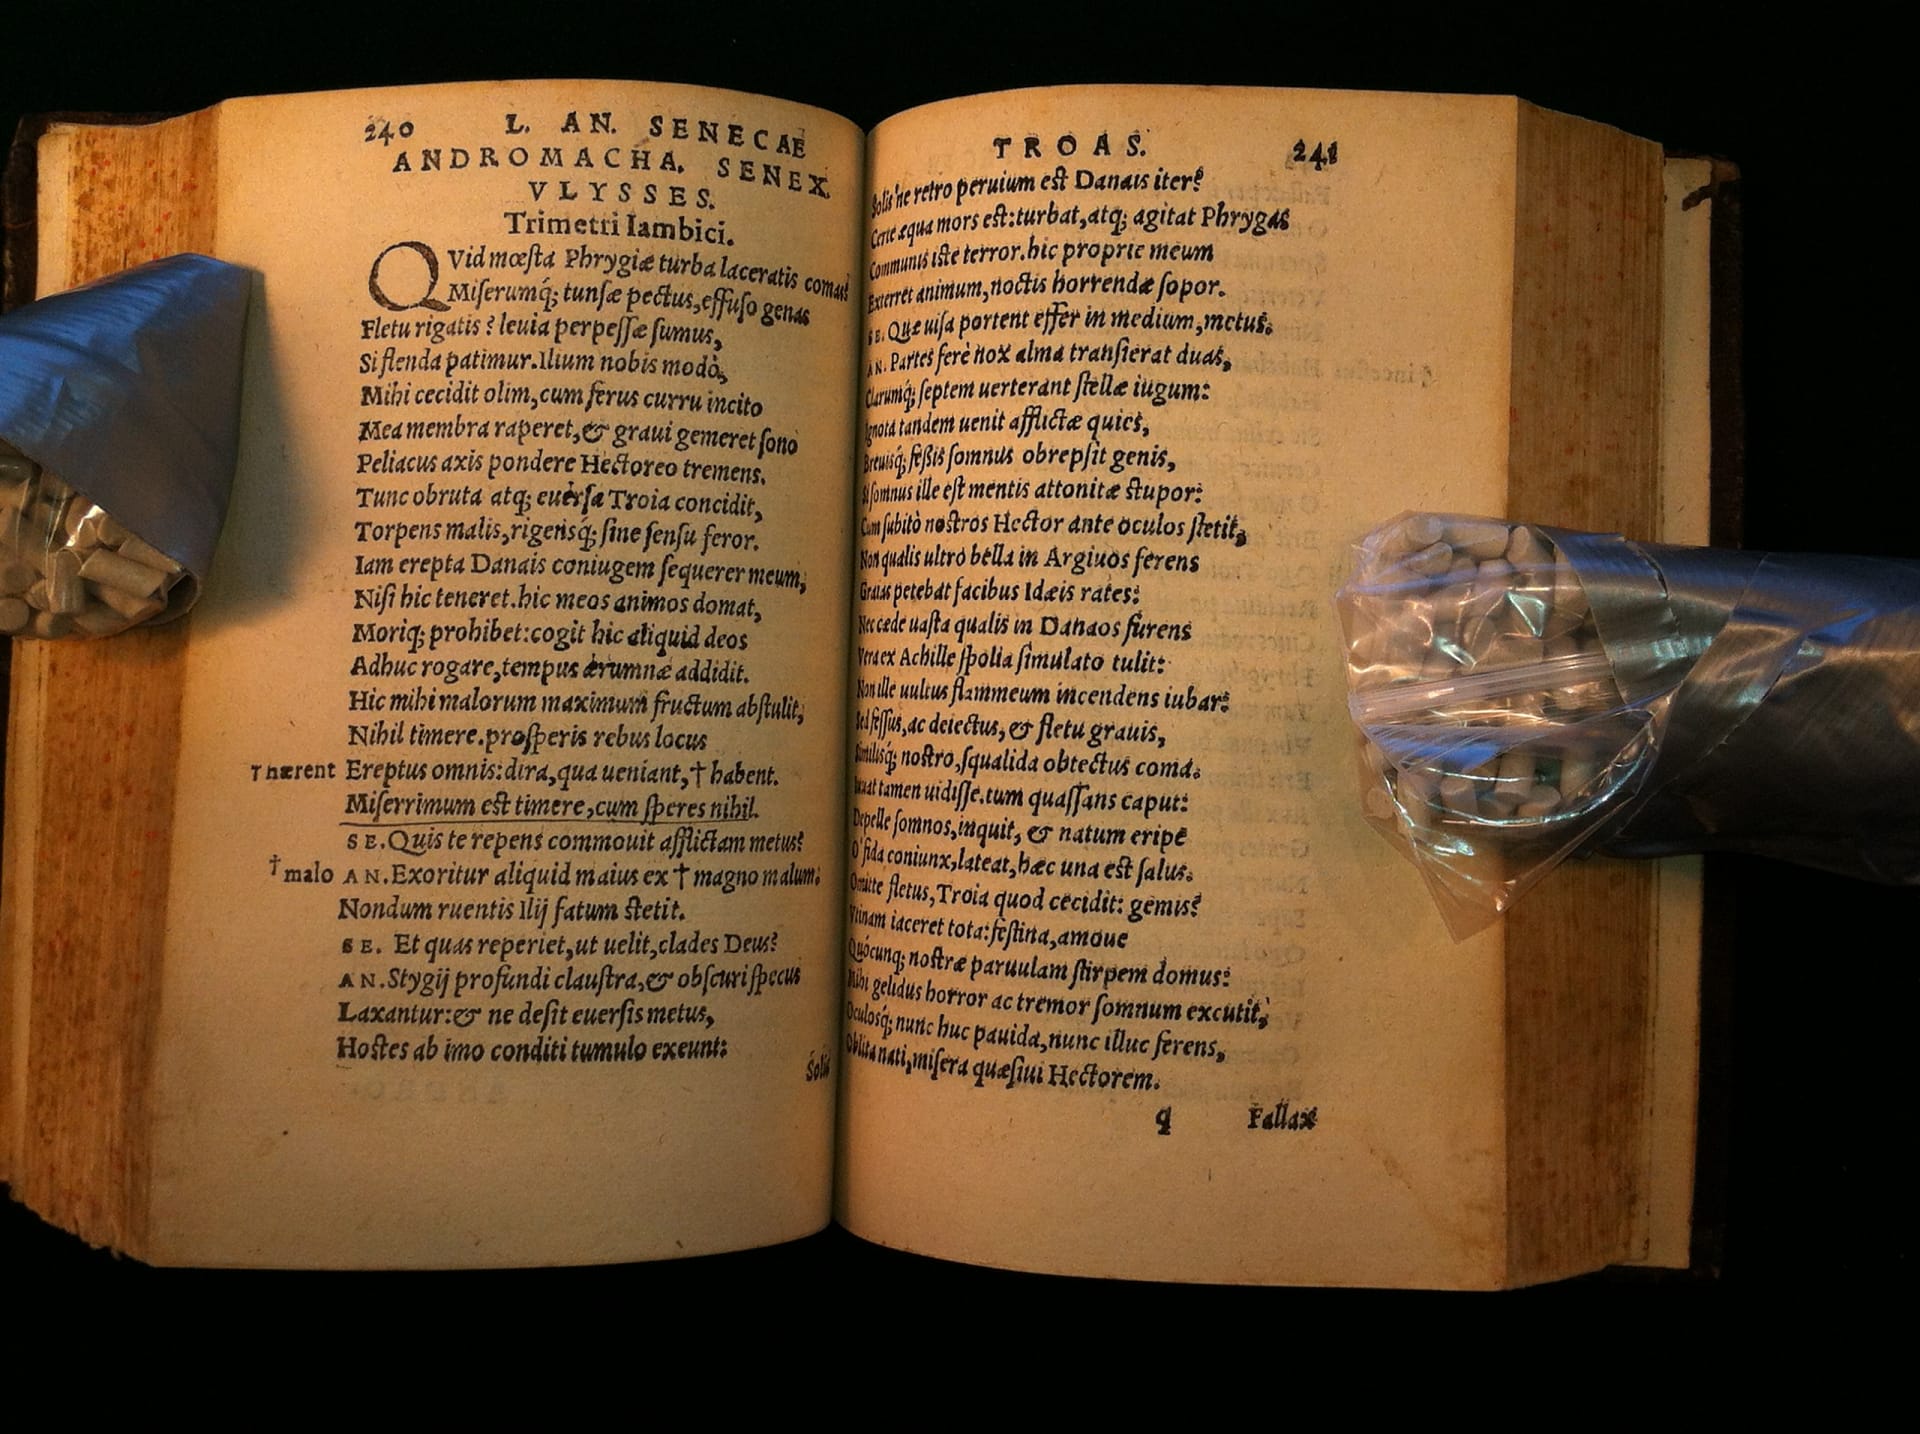 240 L. AN. SENECAE
ANDROMACHA. SENEX.
VLYSSES.
Trimetri Iambici.
QVid mœsta Phrygiæ turba laceratis comas?
Miserumq́; tunsæ pectus, effuso genas
Fletu rigatis? leuia perpessæ sumus,
Si flenda patimur. Ilium nobis modò,
Mihi cecidit olim, cum ferus curru incito
Mea membra raperet, & graui gemeret sono
Peliacus axis pondere Hectoreo tremens.
Tunc obruta atq; euersa Troia concidit,
Torpens malis, rigensq́; sine sensu feror.
Iam erepta Danais coniugem sequerer meum,
Nisi hic teneret. hic meos animos domat,
Moriq; prohibet: cogit hic aliquid deos
Adhuc rogare, tempus ærumnæ addidit.
Hic mihi malorum maximum fructum abstulit,
Nihil timere. prosperis rebus locus
†hærent Ereptus omnis: dira, qua ueniant, † habent.
Miserrimum est timere, cum speres nihil.
SE. Quis te repens commouit afflictam metus?
†malo AN. Exoritur aliquid maius ex † magno malum:
Nondum ruentis Ilij fatum stetit.
SE. Et quas reperiet, ut uelit, clades Deus?
AN. Stygij profundi claustra, & obscuri specus
Laxantur: & ne desit euersis metus,
Hostes ab imo conditi tumulo exeunt:
Solis
TROAS. 241
Solis'ne retro peruium est Danais iter?
Certe æqua mors est: turbat, atq; agitat Phrygas
Communis iste terror. hic proprie meum
Exterret animum, noctis horrendæ sopor.
SE. Quæ uisa portent effer in medium, metus.
AN. Partes ferè nox alma transierat duas,
Clarumq́; septem uerterant stellæ iugum:
Ignota tandem uenit afflictæ quies,
Breuisq́; fessis somnus obrepsit genis,
Si somnus ille est mentis attonitæ stupor:
Cum subitò nostros Hector ante oculos stetit,
Non qualis ultro bella in Argiuos ferens
Graias petebat facibus Idæis rates:
Nec cæde uasta qualis in Danaos furens
Vera ex Achille spolia simulato tulit:
Non ille uultus flammeum incendens iubar:
Sed fessus, ac deiectus, & fletu grauis,
Similisq́; nostro, squalida obtectus coma.
Iuuat tamen uidisse. tum quassans caput:
Depelle somnos, inquit, & natum eripe
O' fida coniunx, lateat, hæc una est salus.
Omitte fletus, Troia quod cecidit: gemis?
Vtinam iaceret tota: festina, amoue
Quòcunq; nostræ paruulam stirpem domus:
Mihi gelidus horror ac tremor somnum excutit,
Oculosq́; nunc huc pauida, nunc illuc ferens,
Oblita nati, misera quæsiui Hectorem.
q Fallax